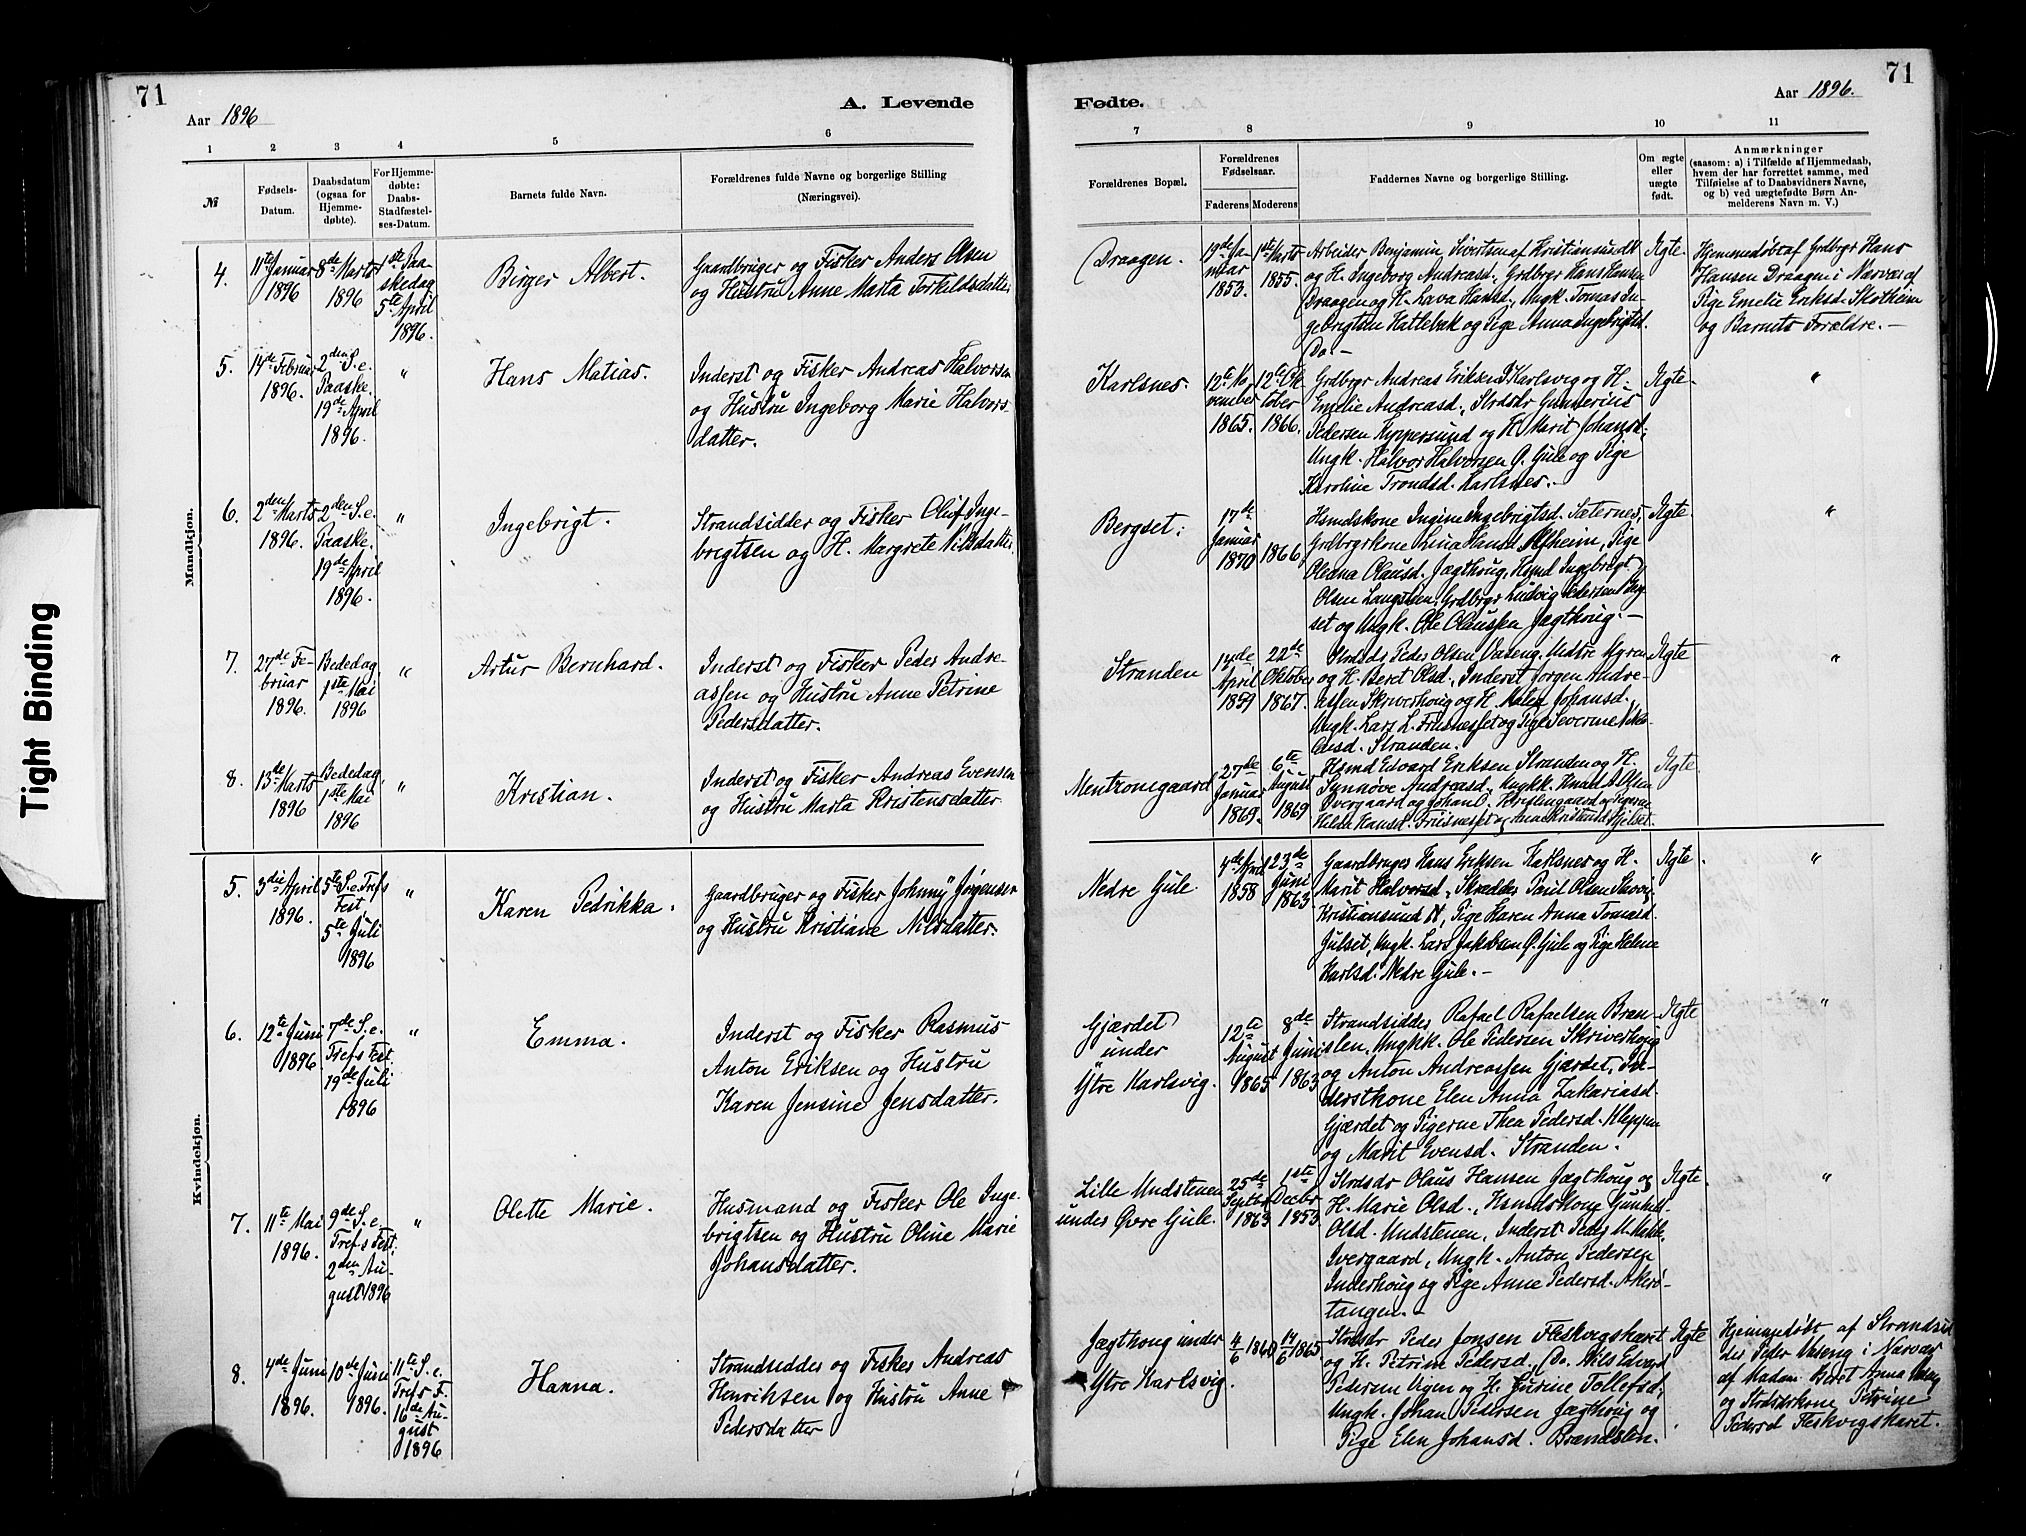 71
Aar 1896
A. Levende
1 2 3 4 5 6
№
Fødsels-
Datum.
Daabsdatum
(ogsaa for
Hjemme-
døbte).
For Hjemme-
døbte:
Daabs-
Stadfæstel-
ses-Datum.
Barnets fulde Navn.
Forældrenes fulde Navne og borgerlige Stilling
(Næringsvei).
Mandkjøn.
4.
11te Januar
1896
8de Marts
1896
1ste Paa-
skedag
5te April
1896.
Birger Albert.
Gaardbruger og Fisker Anders Olsen
og Hustru Anne Marta Torkildsdatter
5.
14de Februar
1896.
2den S. e.
Paaske.
19de April
1896.
"
Hans Matias.
Inderst og Fisker Andreas Halvorsen
og Hustru Ingeborg Marie Halvors-
datter.
6.
2den Marts
1896.
2den S. e.
Paaske.
19de April
1896.
"
Ingebrigt.
Strandsidder og Fisker Oluf Inge-
brigtsen og H. Margrete Nilsdatter.
7.
27de Fe-
bruar
1896.
Bededag
1ste Mai
1896
"
Artur Bernhard.
Inderst og Fisker Peder Andre-
assen og Hustru Anne Petrine
Pedersdatter.
8.
13de Marts
1896
Bededag,
1ste Mai
1896
"
Kristian.
Inderst og Fisker Andreas Evensen
og Hustru Marta Kristensdatter
Kvindekjøn.
5.
3die April
1896.
5te S. e. Trefs
Fest
5te Juli
1896
"
Karen Pedrikka.
Gaardbruger og Fisker Johnny Jørgensen
og Hustru Kristiane Nilsdatter.
6.
12te Juni
1896
7de S. e.
Trefs Fest.
19de Juli
1896
"
Emma.
Inderst og Fisker Rasmus
Anton Eriksen og Hustru
Karen Jensine Jensdatter.
7.
11te Mai
1896.
9de S. e.
Trefs Fest.
2den Au-
gust 1896
"
Olette Marie.
Husmand og Fisker Ole Inge-
brigtsen og Hustru Oline Marie
Johansdatter.
8.
4de Juni
1896.
10de Juni
1896.
11te S. e.
Trefs F.
16de Au-
gust
1896
Hanna.
Strandsidder og Fisker Andreas
Henriksen og Hustru Anne
Pedersdatter
Fødte.
Aar 1896.
71
7 8 9 10 11
Forældrenes Bopæl.
Forældrenes
Fødselsaar.
Faderens Moderens
Faddernes Navne og borgerlige Stilling.
Om ægte
eller
uægte
født.
Anmærkninger
(saasom: a) i Tilfælde af Hjemmedaab,
hvem der har forrettet samme, med
Tilføielse af to Daabsvidners Navne,
og b) ved uægtefødte Børn An-
melderens Navn m. V.)
Draagen.
19de Ja-
nuar
1853.
1ste Marts
1855.
Arbeider Benjamin Sivertsen af Kristiansund
og H. Ingeborg Andreasd., Grdbrgr Hans Hansen
Draagen og H. Lava Hansd., Ungk. Tomas In-
gebrigtsen Hatlebak og Pige Anna Ingebrigtsd.
Do. –
Ægte.
Hjemmedøbt af Grdbrgr Hans
Hansen Draagen i Nærvær af
Pige Emelie Eriksd. Skotheim
og Barnets Forældre. –
Karlsnes.
12te No-
vember
1865.
12te Ok-
tober
1866.
Grdbrgr Andreas Eriksen Y. Karlsvig og H.
Emelie Andreasd., Strdsdr Gunnerius
Pedersen Kuppersund og H. Marit Johansd.,
Ungk. Halvor Halvorsen Ø. Gule og Pige
Karoline Trondsd. Karlsnes. –
Ægte
"
Bergset.
17de
Januar
1870
1866
Hsmdskone Ingine Ingebrigtsd. Sæternes,
Grdbrgrkone Lina Hansd. Alfheim, Pige
Oleana Olausd. Jægthoug, Hsmd Ingebrigt
Olsen Langstein, Grdbrgr Ludvig Pedersen
set og Ungk. Ole Olaussen Jægthoug. –
Ægte.
"
Stranden
14de
April
1859
22de
Oktober
1867.
Strdsdr Peder Olsen Vaseng, Nedre Myren
og H. Beret Olsd., Inderst Jørgen Andre-
assen Skriverhoug og H. Malen Johansd.,
Ungk. Lars L. Frisnesset og Pige Severine
Stranden.
Ægte
"
Mentzonigaard
27de
Januar
1869.
6te
August
1869
Hsmd Edvard Eriksen Stranden og H.
Synnøve Andreasd., Ungkk. Knud Olsen
Ivergaard og Johan og Pigerne
Hilda Hansd. Friisnesset og
Ægte.
Nedre Gule.
4de April
1858
23de
Juni
1863.
Gaardbruger Hans Eriksen Karlsnes og H.
Marit Halvorsd., Skrædder Paul Olsen Skovig
Kristiansund N, Pige Karen Anna Tomasd.
Julset, Ungk. Lars Jakobsen Ø. Gule og Pige Helene
Karlsd. Nedre Gule. –
Ægte.
"
Gjærdet
under
Ytre Karlsvig.
12te
August
1865
8de
Juni
1863
Strandsidder Rafael Rafaelsen Bræn-
slen, Ungkk. Ole Pedersen Skriverhoug
og Anton Andreassen Gjærdet, In-
derstkone Elen Anna Zakariasd.
Gjærdet og Pigerne Thea Pedersd. Kleppen
og Marit Evensd. Stranden.
Ægte
"
Lille Undstenen
under Øvre Gule.
25de
Septbr
1863
1ste
Decbr
1853
Strdsdr Olaus Hansen Jægthoug og
H. Marie Olsd., Hsmdskone Gunnil
Olsd. Undstenen, Inderst Peder
Ivergaard, Ungk. Anton Pedersen
Inderhoug og Pige Anne Pedersd. Akerø-
tangen. –
Ægte.
"
Jægthoug under
Ytre Karlsvig.
4/6 1860
14/6 1865
Strdsdr Peder Jonsen Fleskvigskaret
og H. Petrine Pedersd., Do. Nils Edvard
Pedersen Vigen og H. Gurine Tollefsd.,
Ungk. Johan Pedersen Jægthoug og
Pige Elen Johansd. Brændslen.
Ægte
Hjemmedøbt af Strandsid-
der Peder Vaseng i Nærvær
af Madam Beret Anna
og Strdsdrkone Petrine
Pedersd Fleskvigskaret.
Tight Binding